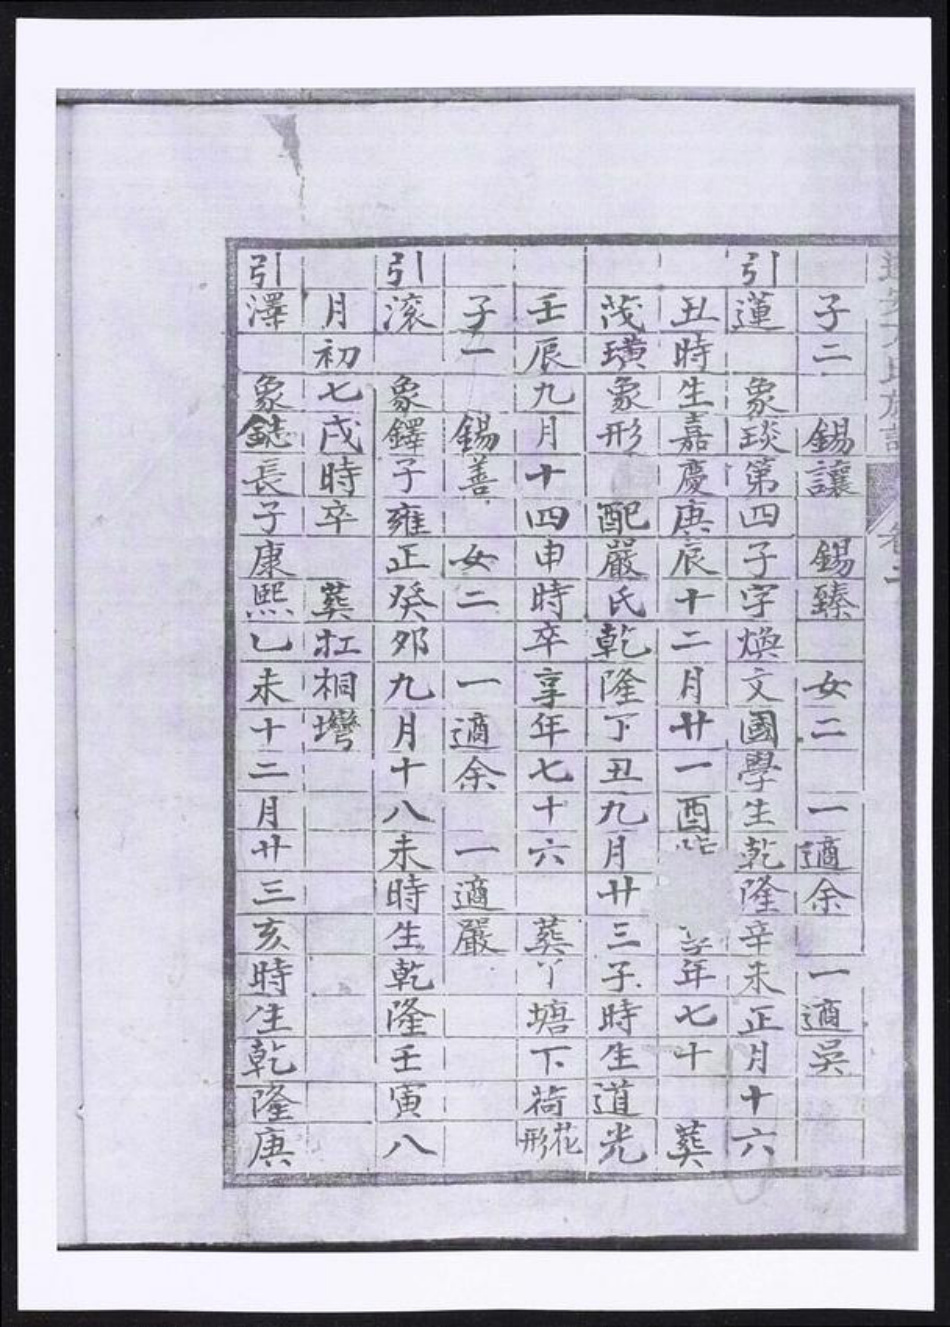 子二 錫讓 錫臻 女二 一適余 一適吳
引蓮 象琰第四子字煥文國學生乾隆辛未正月十六
丑時生嘉慶庚辰十二月廿一酉 年七十 葬
茂璜象形 配嚴氏乾隆丁丑九月廿三子時生道光
壬辰九月十四申時卒享年七十六 葬丫塘下荷花形
子一 錫善 女二 一適余 一適嚴
引滚 象鐸子雍正癸夘九月十八未時生乾隆壬寅八
月初七戌時卒 葬杠桐壪
引澤 象鋕長子康熙乙未十二月廿三亥時生乾隆庚